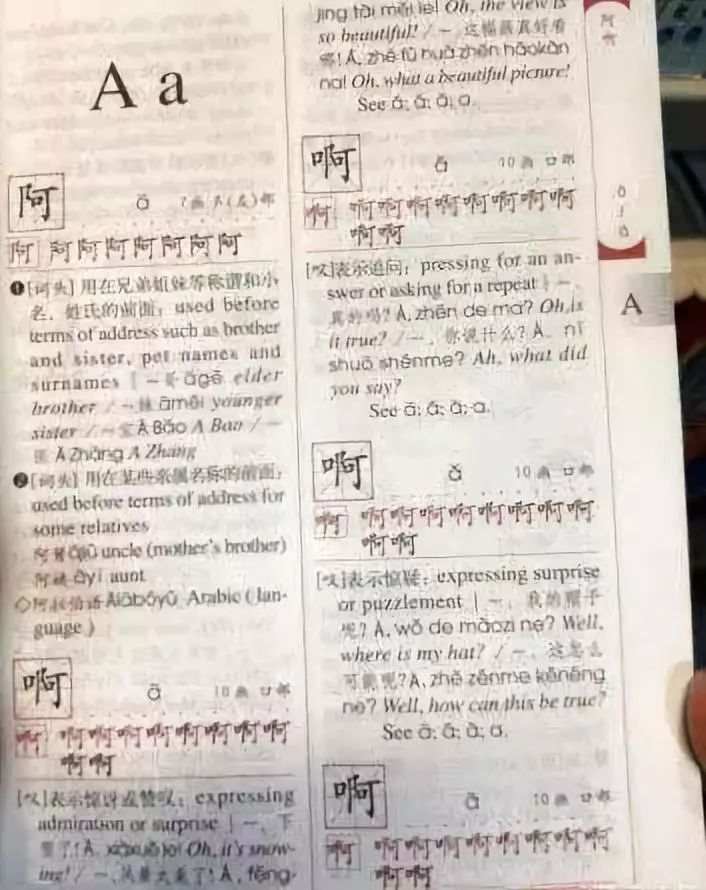 A a
阿 ā 7画 阝(左)部
阿 阿 阿 阿 阿 阿 阿 阿
❶[词头] 用在兄弟姐妹等称谓和小
名、姓氏的前面：used before
terms of address such as brother
and sister, pet names and
surnames | ～哥 āgē elder
brother / ～妹 āmèi younger
sister / ～宝 Ā Bǎo A Bao / ～
张 Ā Zhāng A Zhang
❷[词头] 用在某些亲属名称的前面：
used before terms of address for
some relatives
阿舅 ājiù uncle (mother's brother)
阿姨 āyí aunt
◇阿拉伯语 Ālābóyǔ Arabic (lan-
guage)
啊 ā 10画 口部
啊 啊 啊 啊 啊 啊 啊 啊 啊
啊 啊
[叹]表示惊讶或赞叹：expressing
admiration or surprise | ～，下
雪了！Ā, xiàxuě le! Oh, it's snow-
ing! / ～，风景太美了！Ā, fēng-
jǐng tài měi le! Oh, the view is
so beautiful! / ～，这幅画真好看
哪！Ā, zhè fú huà zhēn hǎokàn
na! Oh, what a beautiful picture!
See á; ǎ; à; a.
啊 á 10画 口部
啊 啊 啊 啊 啊 啊 啊 啊 啊
啊 啊
[叹]表示追问：pressing for an an-
swer or asking for a repeat | ～，
真的吗？Á, zhēn de ma? Oh, is
it true? / ～，你说什么？Á, nǐ
shuō shénme? Ah, what did
you say?
See ā; ǎ; à; a.
啊 ǎ 10画 口部
啊 啊 啊 啊 啊 啊 啊 啊 啊
啊 啊
[叹]表示惊疑：expressing surprise
or puzzlement | ～，我的帽子
呢？Ǎ, wǒ de màozi ne? Well,
where is my hat? / ～，这怎么
可能呢？Ǎ, zhè zěnme kěnéng
ne? Well, how can this be true?
See ā; á; à; a.
啊 à 10画 口部
啊 啊 啊 啊 啊 啊 啊 啊 啊
啊 啊
阿
啊
A